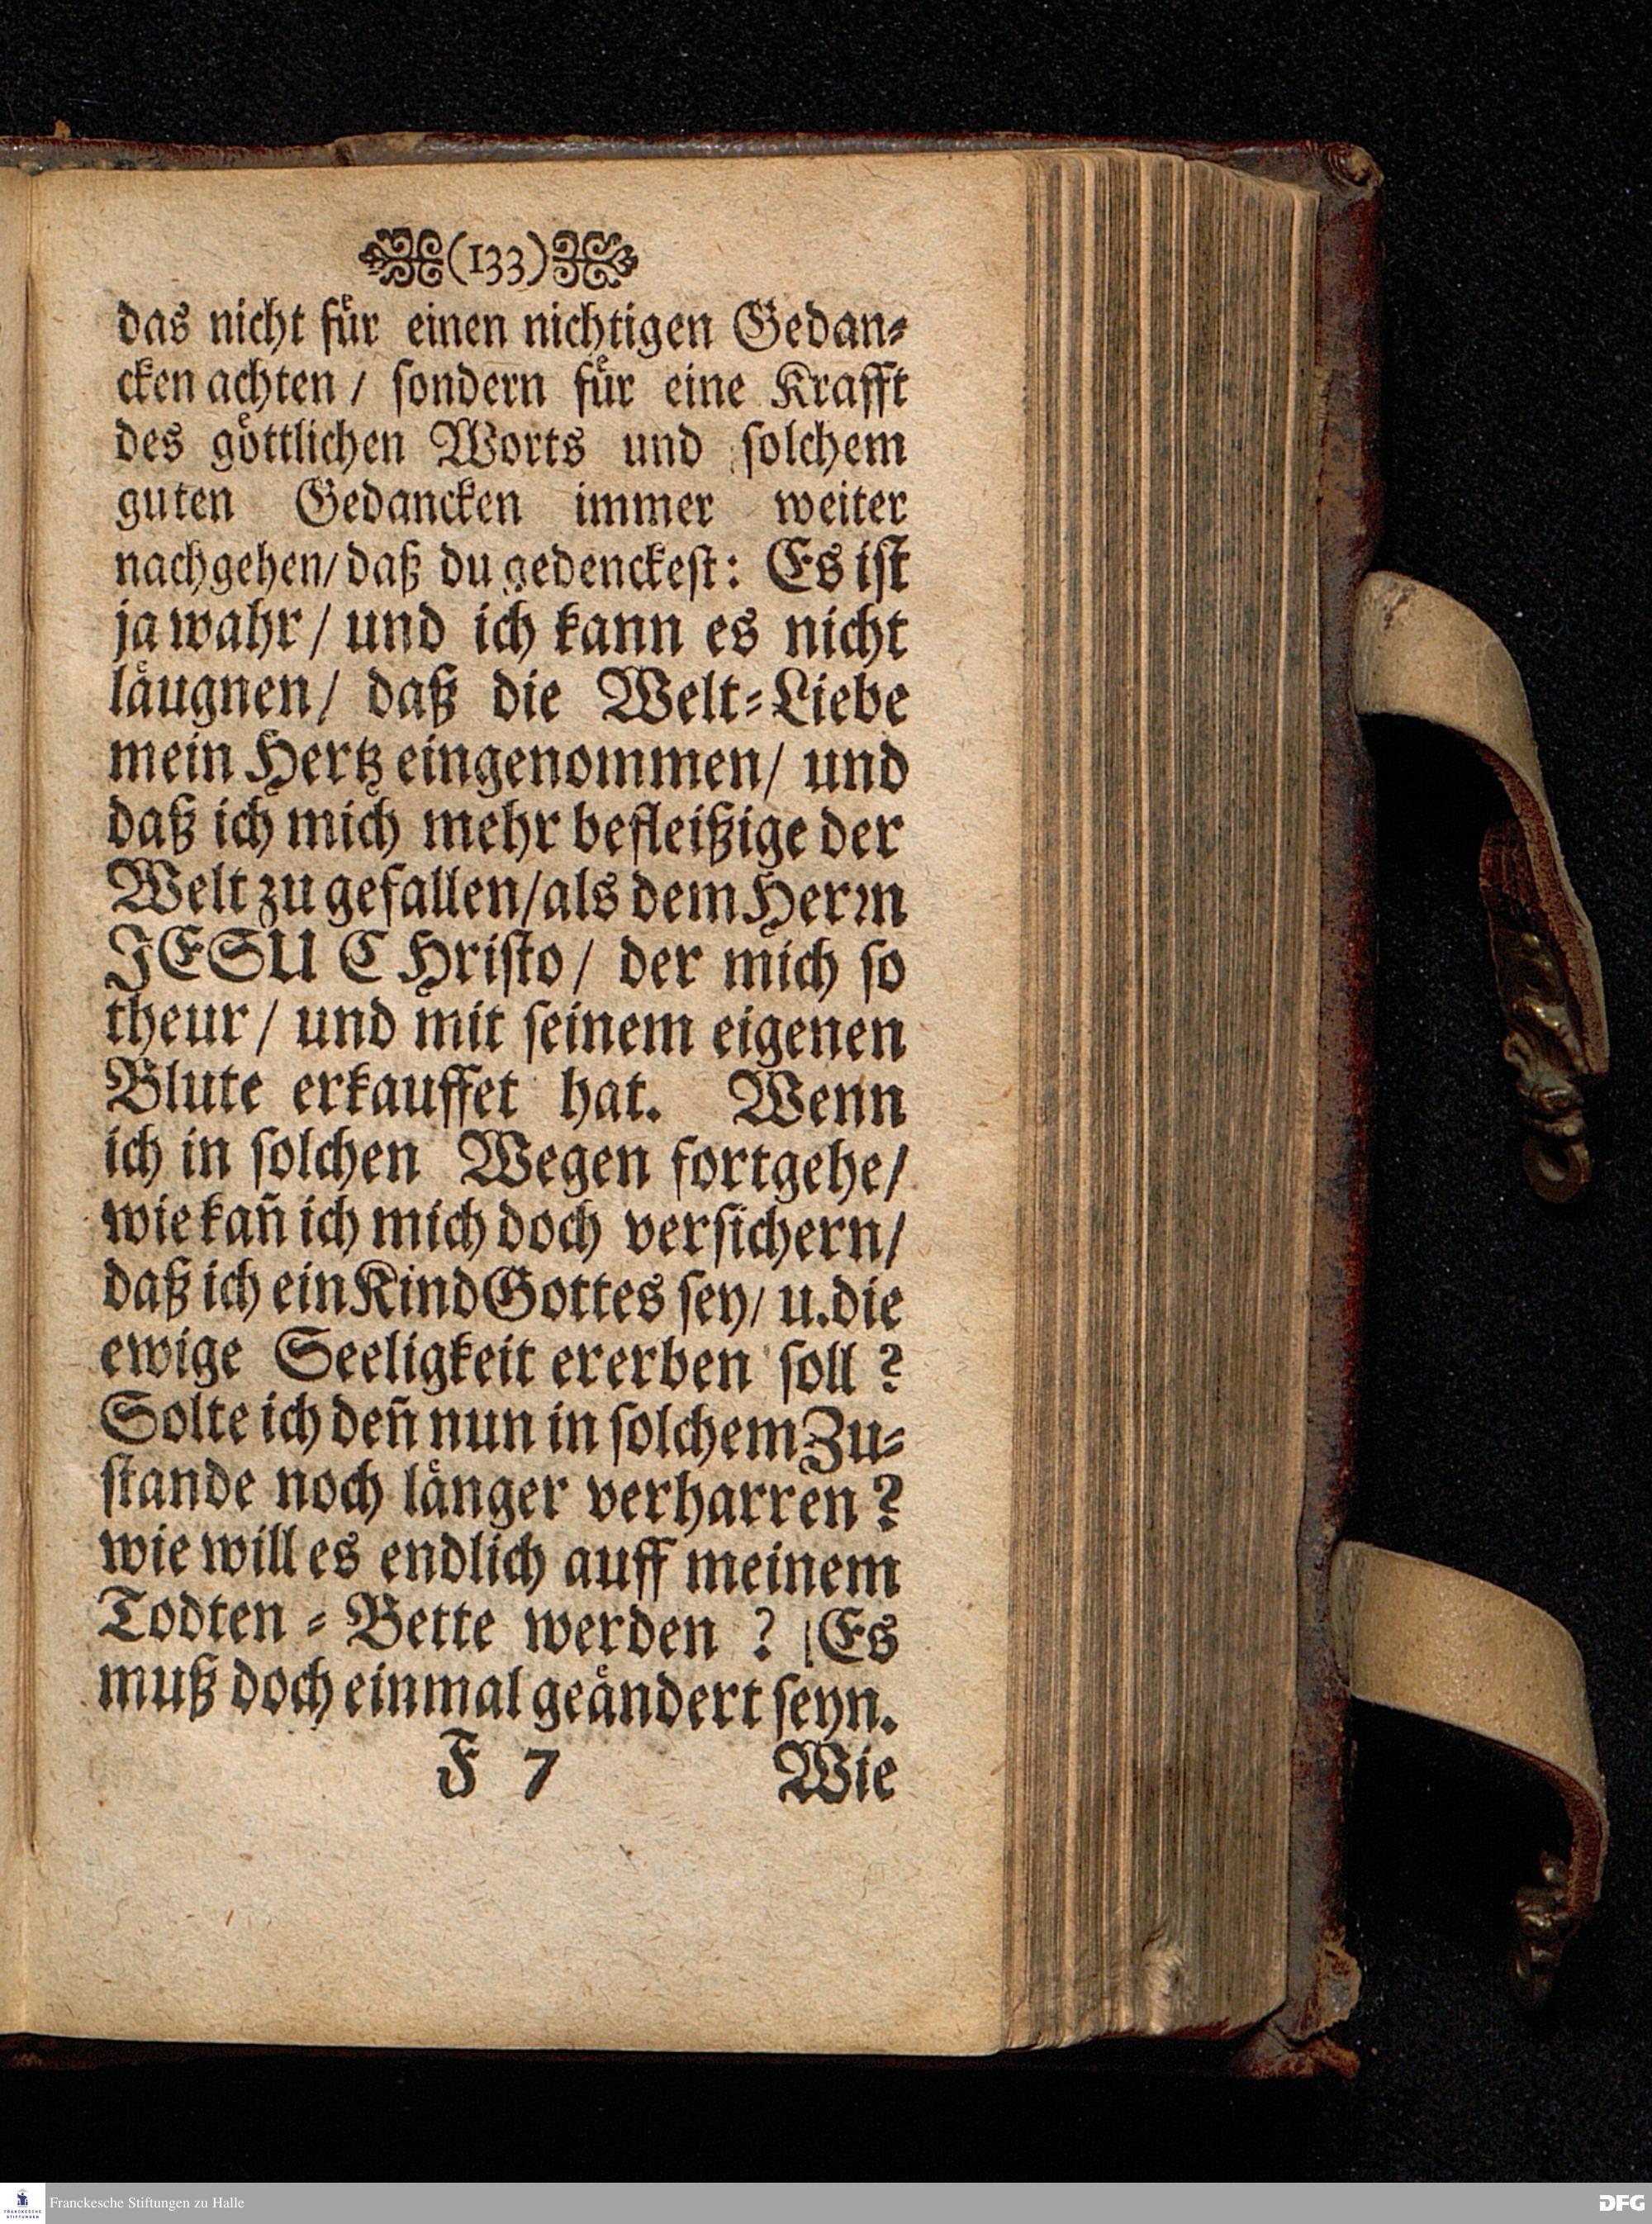 (133)
das nicht fuͤr einen nichtigen Gedan⸗
cken achten / ſondern fuͤr eine Krafft
des goͤttlichen Worts und ſolchem
guten Gedancken immer weiter
nachgehen/ daß du gedenckeſt: Es iſt
ja wahr / und ich kann es nicht
laͤugnen/ daß die Welt⸗Liebe
mein Hertz eingenommen/ und
daß ich mich mehr befleißige der
Welt zu gefallen/als dem Herꝛn
JESU CHriſto/ der mich ſo
theur / und mit ſeinem eigenen
Blute erkauffet hat. Wenn
ich in ſolchen Wegen fortgehe/
wie kañ ich mich doch verſichern/
daß ich ein Kind Gottes ſey/ u. die
ewige Seeligkeit ererben ſoll ?
Solte ich deñ nun in ſolchem Zu⸗
ſtande noch laͤnger verharren ?
wie will es endlich auff meinem
Todten ⸗ Bette werden ? Es
muß doch einmal geaͤndert ſeyn.
F 7 Wie
Franckesche Stiftungen zu Halle
DFG